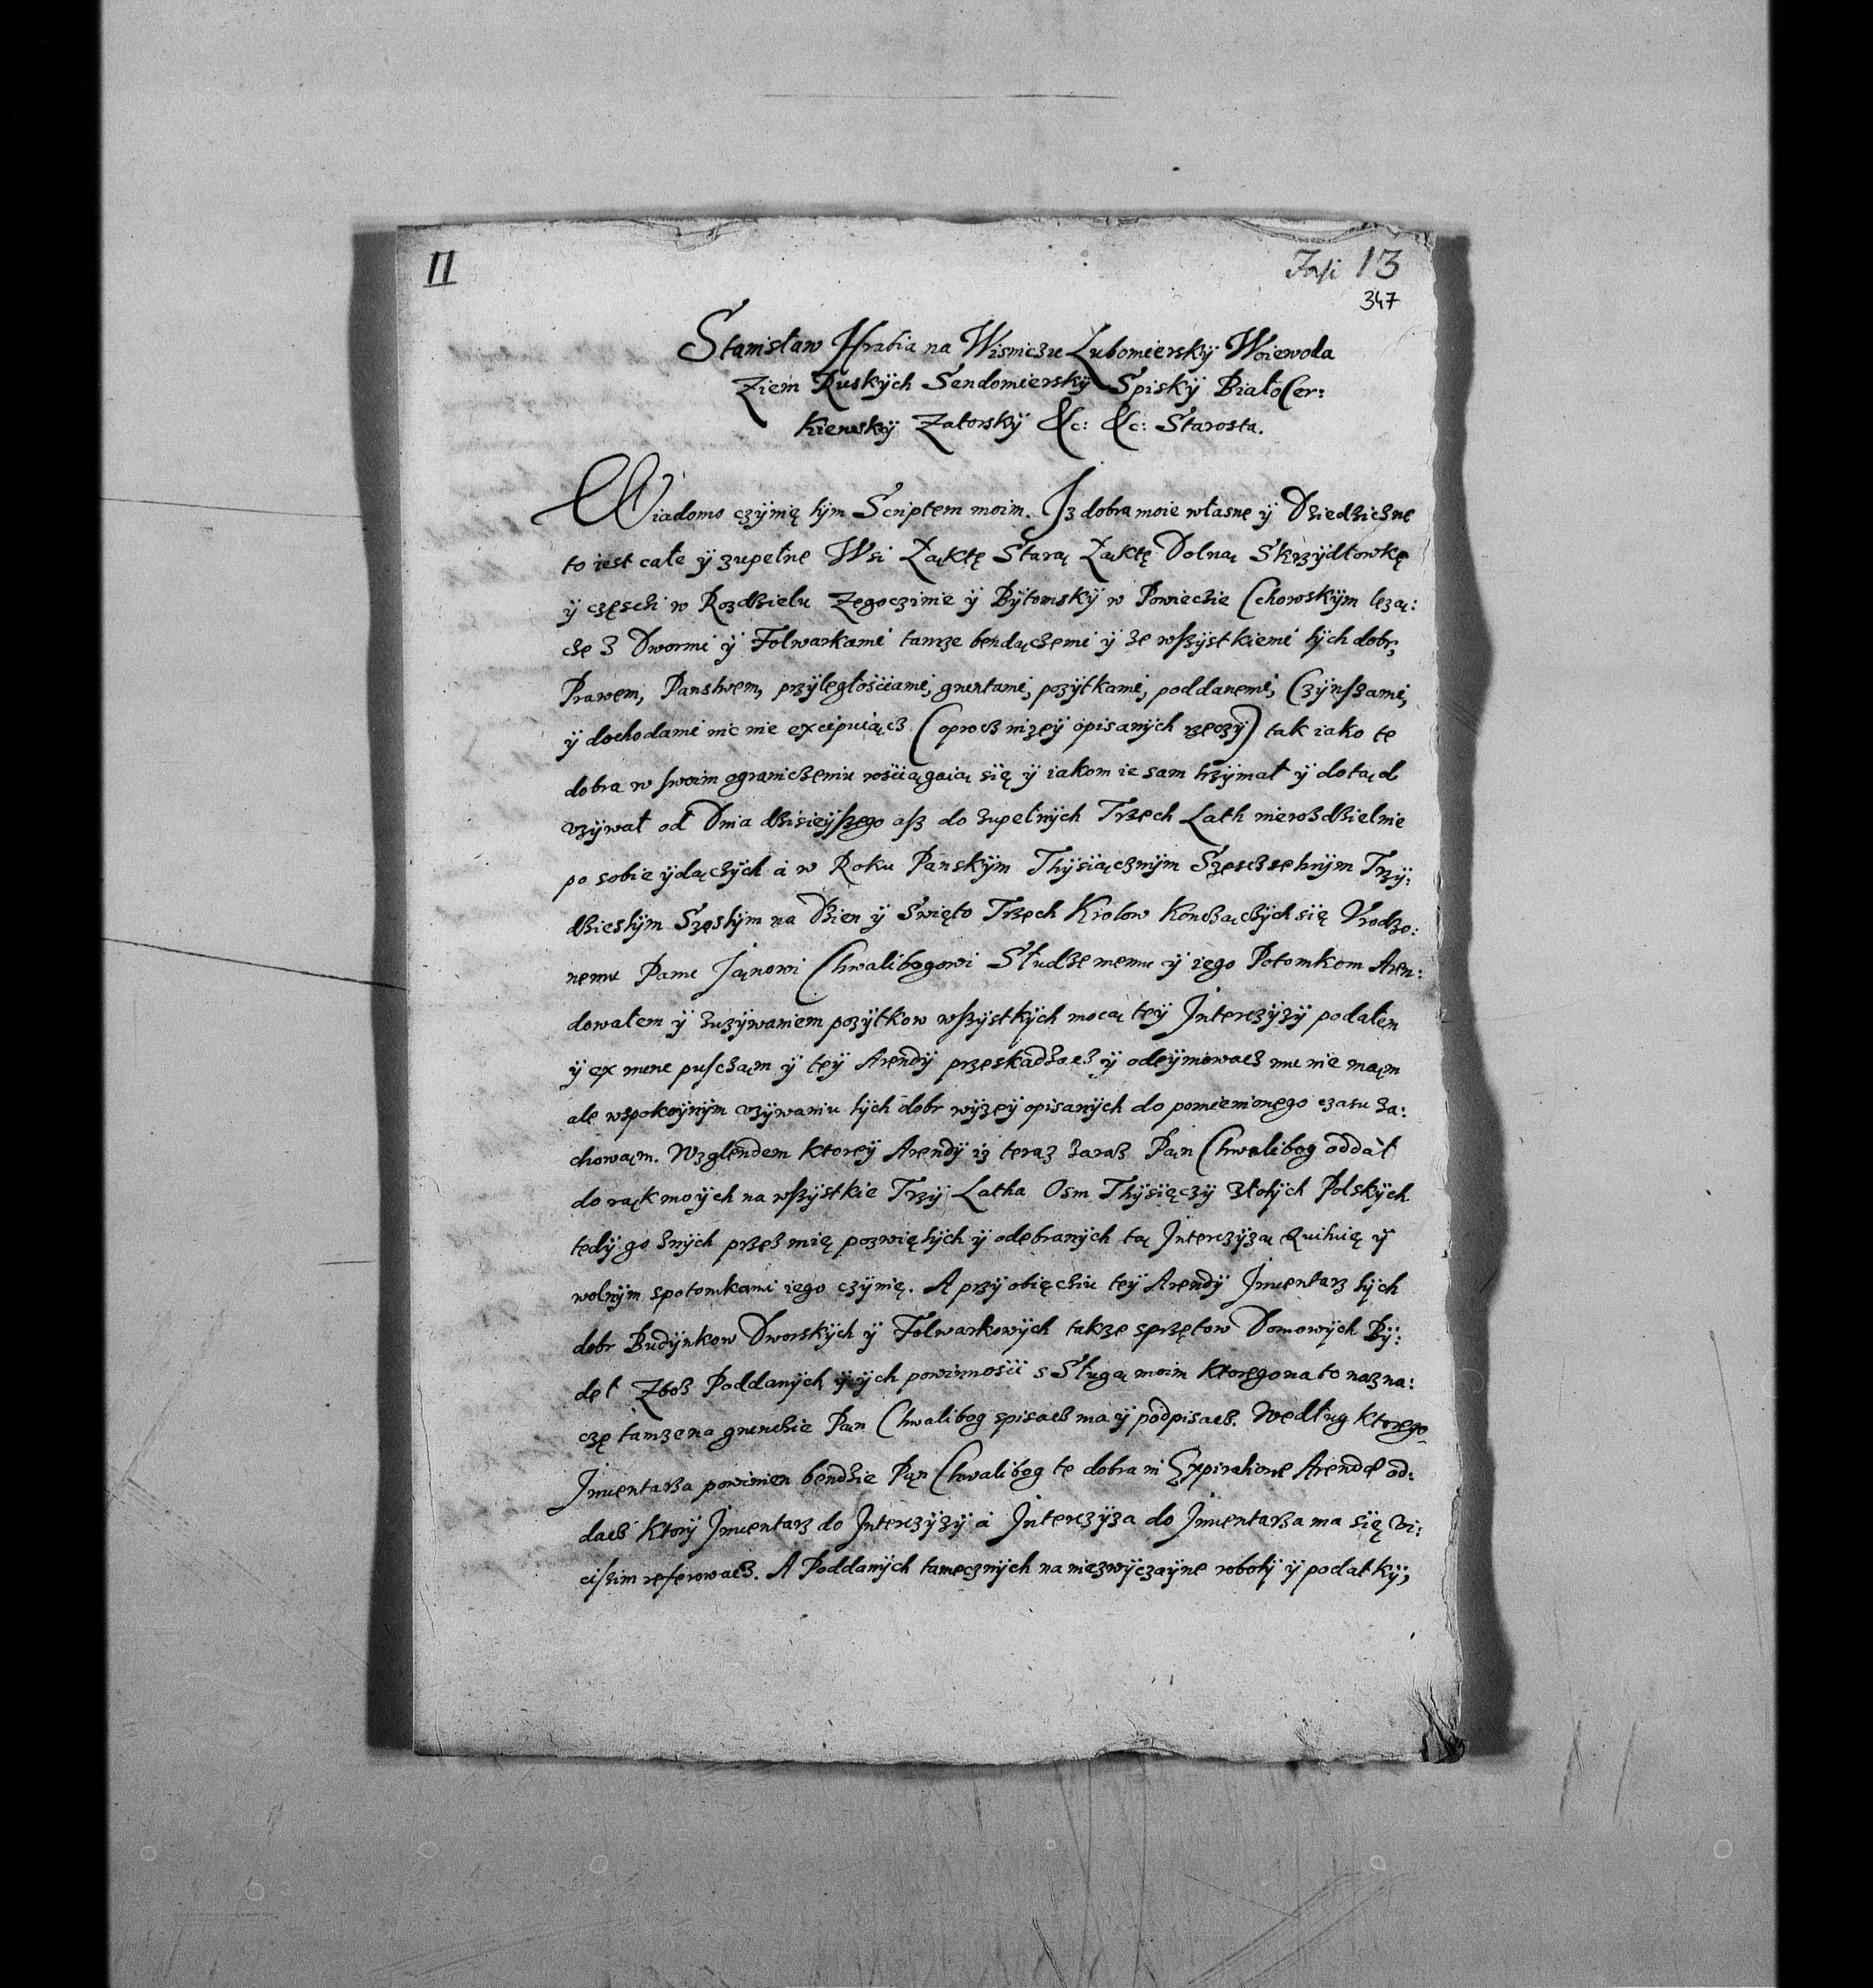 II
13
347
Stanisław Hrabia na Wisniczu Lubomierskÿ Woiewoda
Ziem Ruskÿch Sendomierskÿ Spiskÿ BiałoCer:
kiewskÿ Zatorskÿ &c: &c: Starosta.
Wiadomo czÿnię tÿm Scriptem moim. Iz dobra moie własne ÿ Dziedziczne
to iest całe ÿ zupełne Wsi Łąktę Starą Łąktę Dolną Skrzÿdłowkę
ÿ częsczi w Rozdzielu Zegoczinie ÿ Bÿtomskÿ w Powieczie Cchowskÿm lezą:
cze z Dwormi ÿ Folwarkami tamze bendączemi ÿ ze wszÿstkiemi tÿch dobr,
Prawem, Panstwem, przÿległosciami, gruntami, pozÿtkami, poddanemi, Czÿnszami,
ÿ dochodami nic nie excipuiącz (oprocz nizeÿ opisanÿch rzeczÿ) tak iako te
dobra w swoim ograniczeniu rosciągaią się ÿ iakom ie sam trzÿmał ÿ dotąd
vzÿwał od Dnia dzisieÿszego asz do zupełnÿch Trzech Lath nierozdzielnie
po sobie ÿdączÿch á w Roku Panskÿm Thÿsiącznÿm Szesczsetnÿm Trzÿ:
dziestÿm Szostÿm na Dzien ÿ Swięto Trzech Krolow Konczączÿch się Vrodzo:
nemu Panu Jąnowi Chwalibogowi Słudze memu ÿ iego Potomkom Aren:
dowałem ÿ zuzÿwaniem pozÿtkow wszÿstkÿch mocą teÿ Interczÿzÿ podałem
ÿ ex nunc puscząm ÿ teÿ Arendÿ przeskadzacz ÿ odeÿmowacz mu nie mąm
ale wspokoÿnÿm vzÿwaniu tÿch dobr wÿzeÿ opisanÿch do pomienionego czasu za:
chowąm. Wzglendem ktoreÿ Arendÿ iz teraz zaraz Pąn Chwalibog oddał
do rąk moÿch na wszÿstkie Trzÿ Latha Osm Thÿsięczÿ złotÿch Polskÿch
tedÿ go znÿch przez mię pozwiętÿch ÿ odebranÿch tą Interczÿzą Quituię ÿ
wolnÿm spotomkami iego czÿnię. A przÿ obięcziu teÿ Arendÿ Inwentarz tÿch
dobr Budÿnkow Dworskÿch ÿ Folwarkowÿch takze sprzętow Domowÿch Bÿ:
deł Zboz Poddanÿch ÿ ÿch powinnosci s Sługą moim ktorego na to nazna:
czę tamze na grunczie Pąn Chwalibog spisacz ma ÿ podpisacz. Według ktorego
Inwentarza powinien bendzie Pąn Chwalibog te dobra in Expiratione Arendae od:
dacz ktorÿ Inwentarz do Interczÿzÿ á Interczÿza do Inwentarza ma się vi:
cissim referowacz. A Poddanÿch tamecznÿch na niezwÿczaÿne robotÿ ÿ podatkÿ,